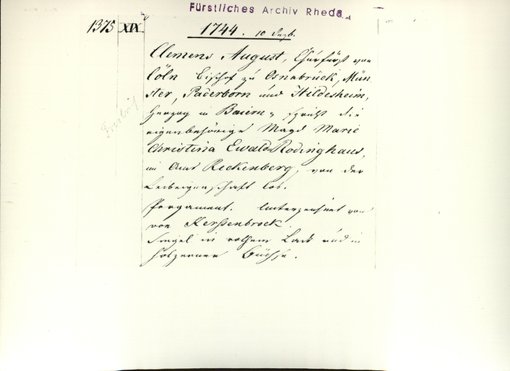 Fürstliches Archiv Rheda
1375 XIX
1744. 10 Sept.
Clemens August, Churfürst von
Cöln Bischof zu Osnabrück, Mün-
ster, Paderborn und Hildesheim,
Herzog in Baiern, spricht die
eigenbehörige Magd Marie
Christina Ewald Rodinghaus,
im Amt Reckenberg, von der
Leibeigenschaft los.
Pergament. Unterzeichnet von
von Kerssenbrock.
Siegel in rothem Lack und in
hölzerner Büchse.